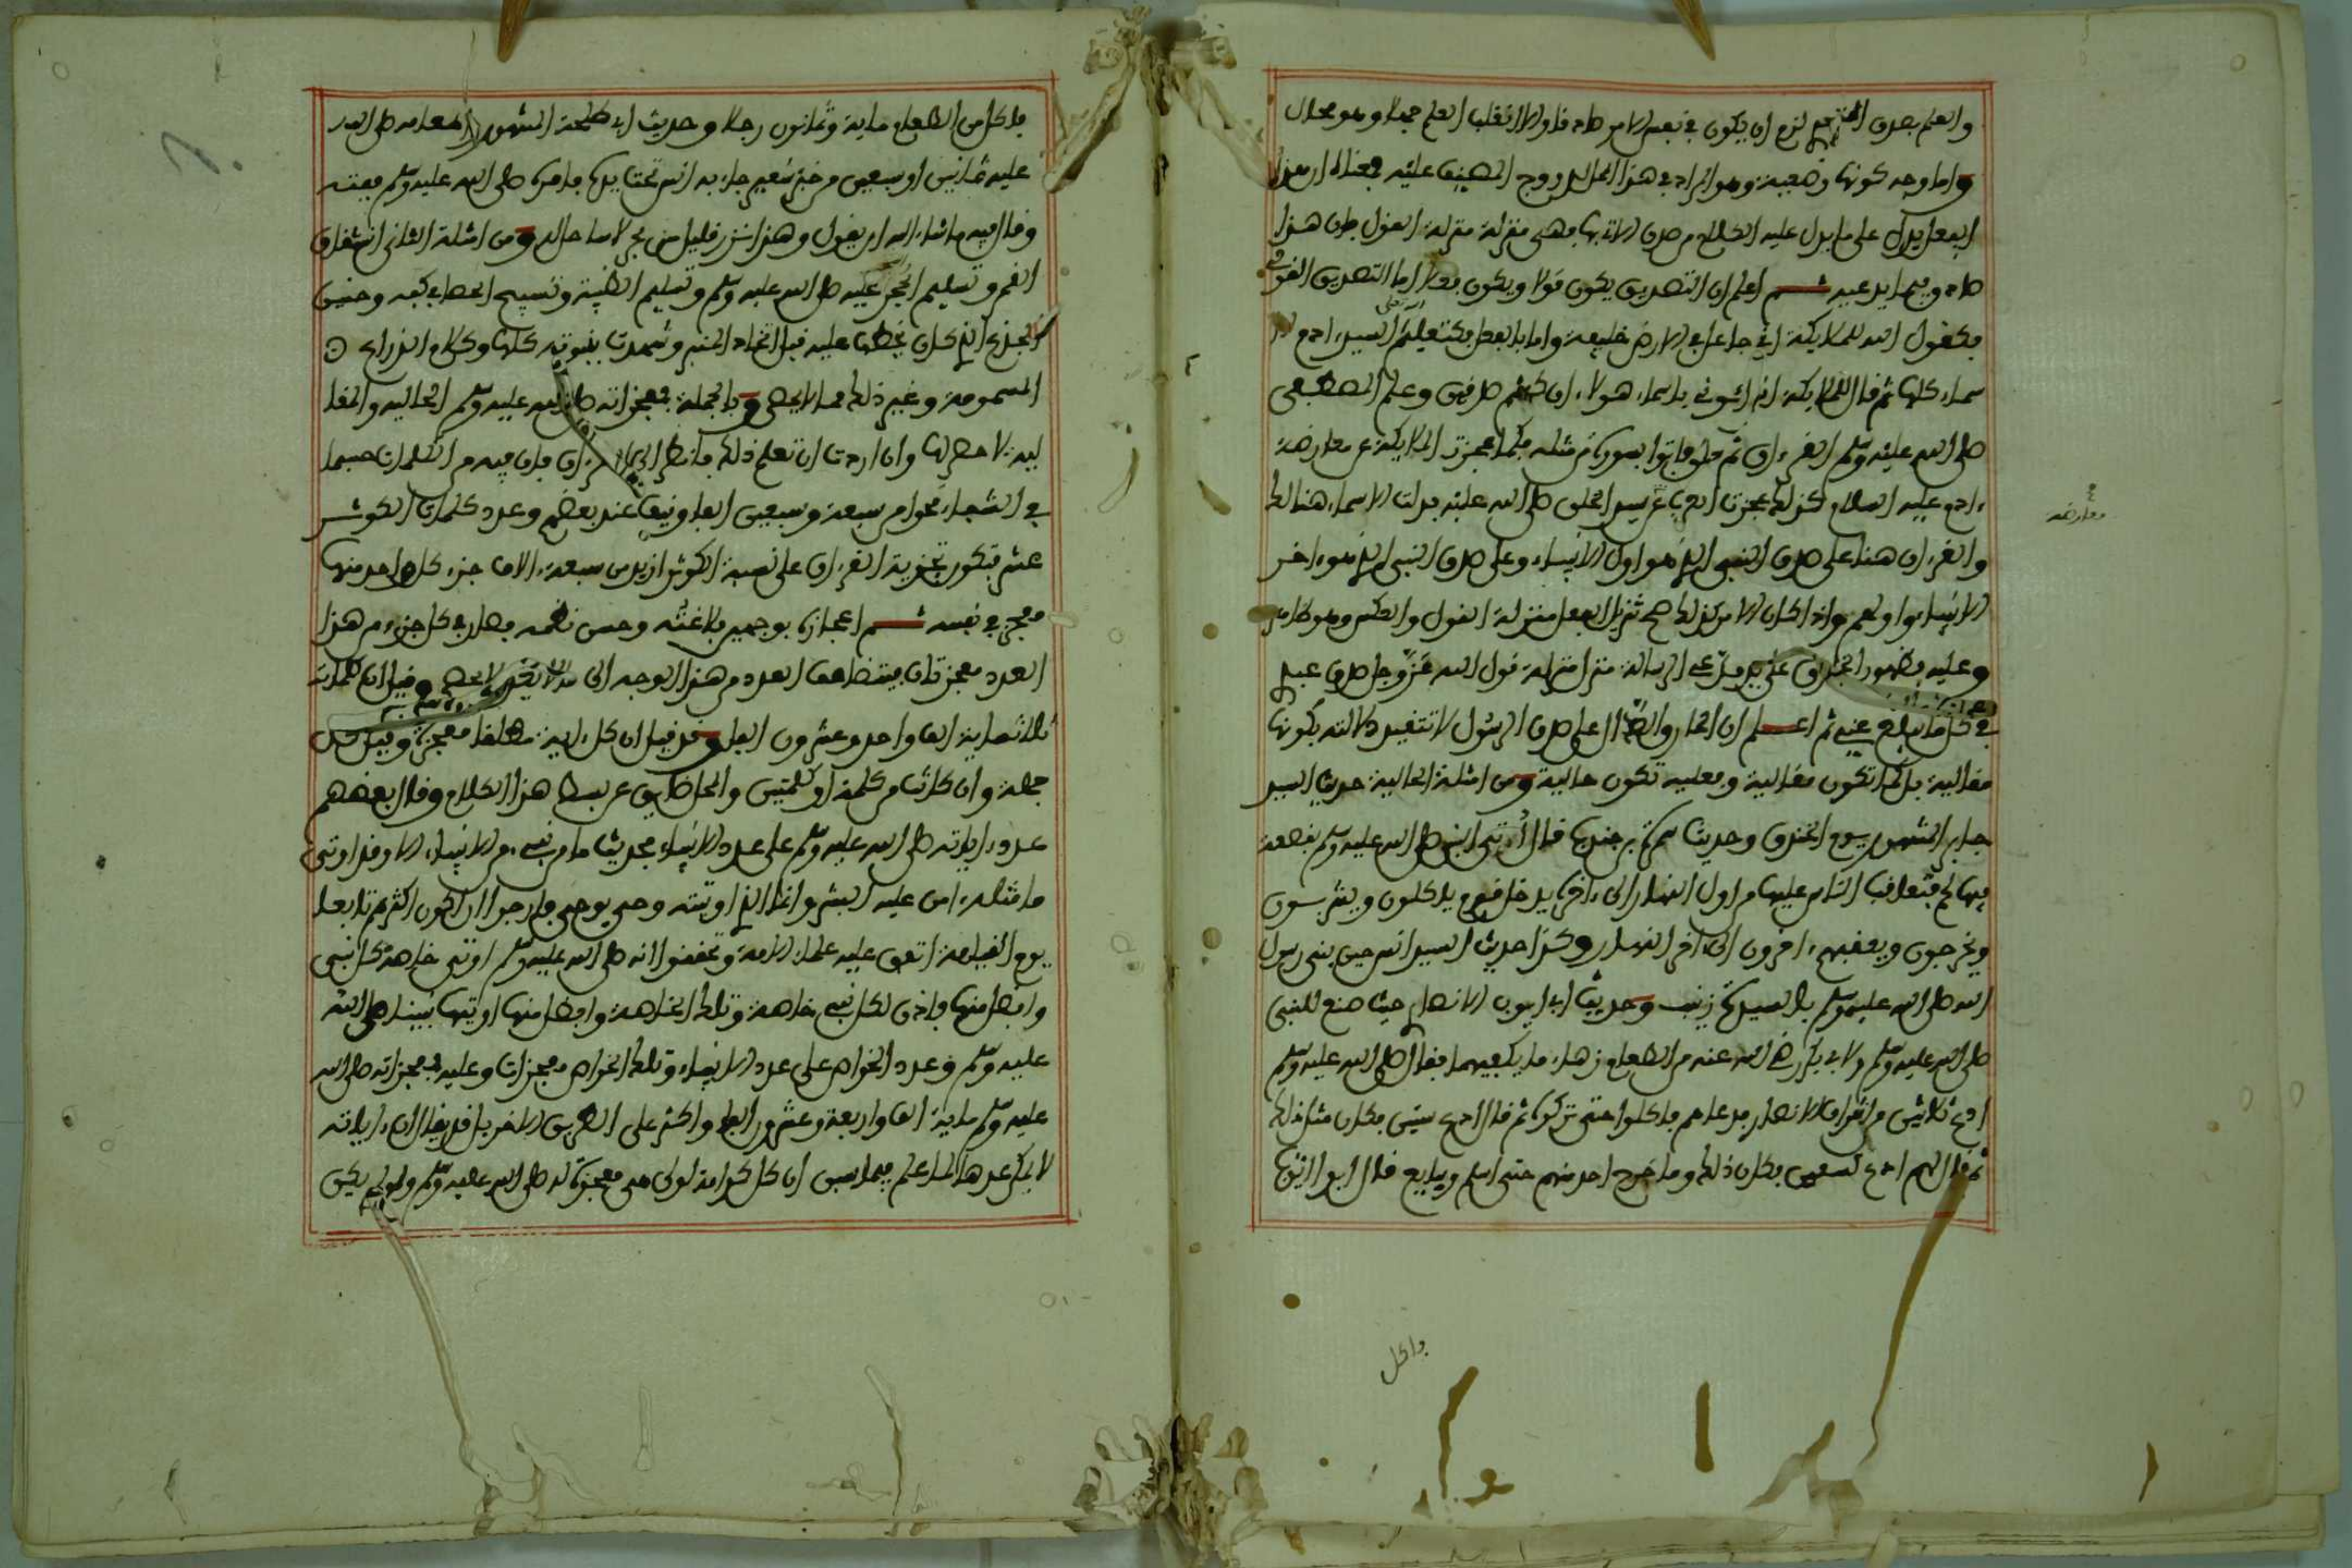 والعلم بصدق المخبر لزم ان يكون في نفس الامر صادقا والا انقلب العلم جهلا وهو محال
واما وجه كونها وضعية وهو المراد في هذا المحل
الفعل يدل على ما يدل عليه الكلام من صدق الاتي بها فهي منزلة منزلة القول بان هذا
صادق فيما يدعيه ثم اعلم ان التصديق يكون قولا ويكون فعلا اما التصديق القولي
فكقول الله للملايكة اني جاعل في الارض خليفة واما بالفعل فكتعليم السيد ءادم الا
سماء كلها ثم قال للملايكة انبئوني باسماء هولاء ان كنتم صادقين وعلم المصطفى
صلى الله عليه وسلم القرءان ثم قال فاتوا بسورة من مثله فكما عجزت الملايكة عن معارضة
ءادم عليه السلام كذلك عجزت العرب عن سيد الخلق صلى الله عليه فدلت الاسماء هنالك
والقرءان هنا على صدق النبي الذي هو اول الانبياء وعلى صدق النبي الذي هو ءاخر
الانبياء واولهم واذا كان الامر كذلك صح تنزيل الفعل منزلة القول والعكس وهو كلام
وعليه فظهور الخوارق على يد مدعي الرسالة منزل منزلة قول الله عز وجل صدق عبدي
في كل ما يبلغ عني ثم اعلم ان الخارق الدال على صدق الرسول لا تتقيد دلالته بكونها
مقالية بل كما تكون مقالية وفعلية تكون حالية ومن امثلة الحالية حديث السيد
جابر المشهور يوم الخندق وحديث سمرة بن جندب قال أوتي النبي صلى الله عليه وسلم بقصعة
فيها لحم فتعاقب الناس عليها من اول النهار الى ءاخره يدخل قوم ياكلون ويشربون
ويخرجون ويعقبهم ءاخرون الى ءاخر النهار وكذا حديث السيد انس حين بنى رسول
الله صلى الله عليه وسلم بالسيدة زينب وحديث ابي ايوب الانصاري حيث صنع للنبي
صلى الله عليه وسلم ولابي بكر رضي الله عنه من الطعام زهاء ما يكفيهما فقال صلى الله عليه وسلم
ادع ثلاثين من اشراف الانصار فدعاهم فاكلوا حتى تركوا ثم قال ادع ستين فكان مثل ذلك
ثم قال لهم ادع تسعين فكان ذلك وما خرج احد منهم حتى اسلم وبايع قال ابو ايوب
معارضة
فاكل
فاكل من الطعام ماية وثمانون رجلا وحديث ابي طلحة المشهور اطعامه صلى الله
عليه ثمانين او سبعين من خبز شعير جاء به انس تحت يده فامر به صلى الله عليه وسلم ففته
وقال فيه ما شاء الله ان يقول وهذا نزر قليل من بحر لا ساحل له ومن امثلة الثاني انشقاق
القمر وتسليم الحجر عليه صلى الله عليه وسلم وتسليم الظبية وتسبيح الحصا في كفه وحنين
الجذع الذي كان يخطب عليه قبل اتخاذ المنبر وشهدت بنبوته كلها وكلام الذراع
المسمومة وغير ذلك مما لا يحصى وبالجملة فمعجزاته صلى الله عليه وسلم الحالية والمقا
لية لا حصر لها وان اردت ان تعلم ذلك فانظر الى القرءان فان فيه من الكلمات حسبما
في الشفاء نحوا من سبعة وسبعين الفا ونيفا عند بعضهم وعدد كلمات الكوثر
عشر فتكون تجزية القرءان على نسبة الكوثر ازيد من سبعة ءالاف جزء كل واحد منها
معجز في نفسه ثم اعجازه بوجهين بلاغته وحسن نظمه فصار في كل جزء من هذا
العدد معجزتان فيتضاعف العدد من هذا الوجه الى ما لا يحصى وقيل ان كلماته
ثلاثماية الف واحد وعشرون الفا وقد قيل ان كل ءاية مطلقا معجزة وقيل كل
جملة وان كانت من كلمة او كلمتين والمحل ضايق عن بسط هذا الكلام وقال بعضهم
عدد ءاياته صلى الله عليه وسلم على عدد الانبياء لحديث ما من نبيء من الانبياء الا وقد اوتي
ما مثله ءامن عليه البشر وانما الذي اوتيته وحي يوحى فارجوا ان اكون اكثرهم تابعا
يوم القيامة اتفق عليه علماء الامة وتحققوا انه صلى الله عليه وسلم اوتي خاصة كل نبي
وافضل منها فاذن لكل نبيء خاصة وتلك الخاصة وافضل منها اوتيها نبينا صلى الله
عليه وسلم وعدد الخواص على عدد الانبياء وتلك الخواص معجزات وعليه فمعجزاته صلى الله
عليه وسلم ماية الف واربعة وعشرون الفا واكثر على الطريق الاخر بل قد يقال ان ءاياته
لا يمكن عدها لما علم فيما سبق ان كل كرامة لولي هي معجزة له صلى الله عليه وسلم ولو لم يكن